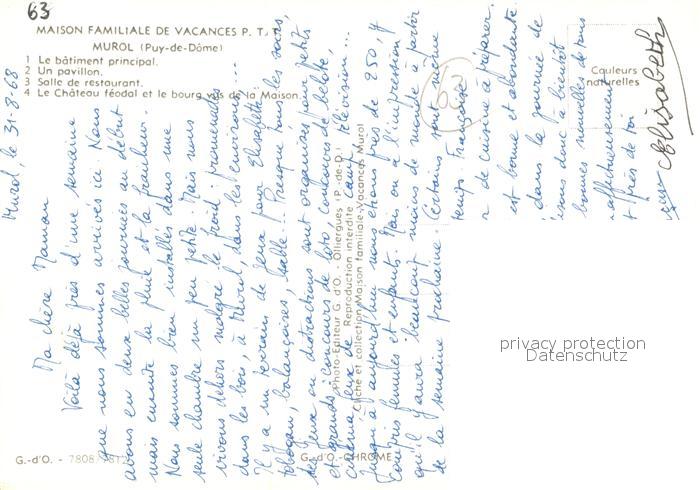 63
MAISON FAMILIALE DE VACANCES P. T.
MUROL (Puy-de-Dôme)
1 Le bâtiment principal.
2 Un pavillon.
3 Salle de restaurant.
4 Le Château féodal et le bourg vus de la Maison.
Couleurs
naturelles
63
Murol, le 31-8-68
Ma chère Maman
Voilà déjà près d'une semaine
que nous sommes arrivés ici. Nous
avons eu deux belles journées au début
mais ensuite la pluie et la fraîcheur.
Nous sommes bien installés dans une
seule chambre un peu petite. Mais nous
vivons dehors malgré le froid: promenades
dans les bois, à Murol, dans les environs...
Il y a un terrain de jeux pour Elisabeth:
toboggan, balançoires, sable... Presque tous les soirs,
des jeux ou distractions sont organisés pour petits
et grands: concours de loto, concours de belote,
cinéma, feux de camp, télévision...
Jusqu'à aujourd'hui nous étions près de 250, y
compris femmes et enfants. Mais on a l'impression
qu'il y aura beaucoup moins de monde à partir
de la semaine prochaine. Certains sont même
temps Française
de cuisine à préparer.
est bonne et abondante
dans la journée de
donc à bientôt
bonnes nouvelles de tous
affectueusement
près de toi
Elisabeth
Photo-Editeur G. d'O. - Olliergues (P.-de-D.)
Reproduction interdite
Cliché et collection Maison familiale Vacances Murol
G.-d'O. - 7808/
G.-d'O.-CHROME
privacy protection
Datenschutz